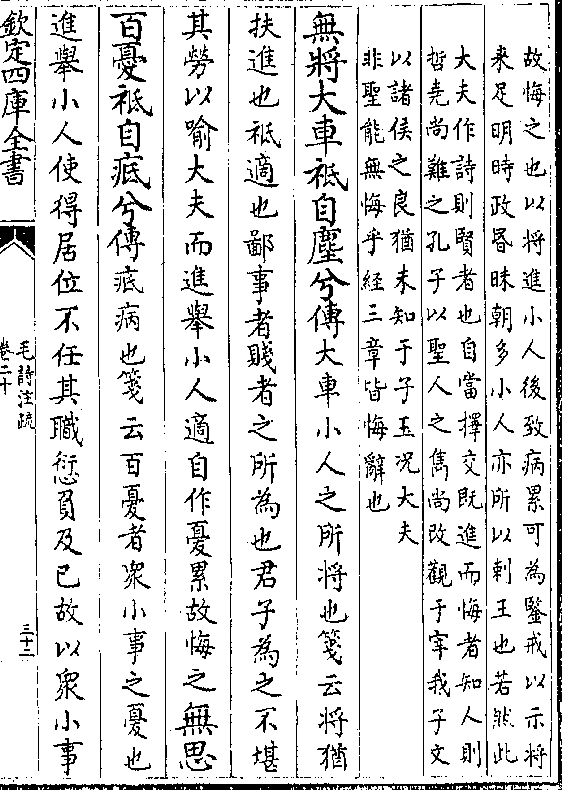 故悔之也以将進小人後致病累可為鑒戒以示將
来足明時政昬昧朝多小人亦所以刺王也若然此
大夫作詩則賢者也自當擇交既進而悔者知人則
哲堯尚難之孔子以聖人之雋尚改觀于宰我子文
以諸侯之良猶未知于子玉况大夫
非聖能無悔乎經三章皆悔辭也
無將大車祗自塵兮傳大車小人之所將也箋云將猶
扶進也祗適也鄙事者賤者之所為也君子為之不堪
其勞以喻大夫而進舉小人適自作憂累故悔之無思
百憂祗自疧兮傳疧病也箋云百憂者衆小事之憂也
進舉小人使得居位不任其職愆負及已故以衆小事
欽定四庫全書
毛詩注疏
卷二十
三十二